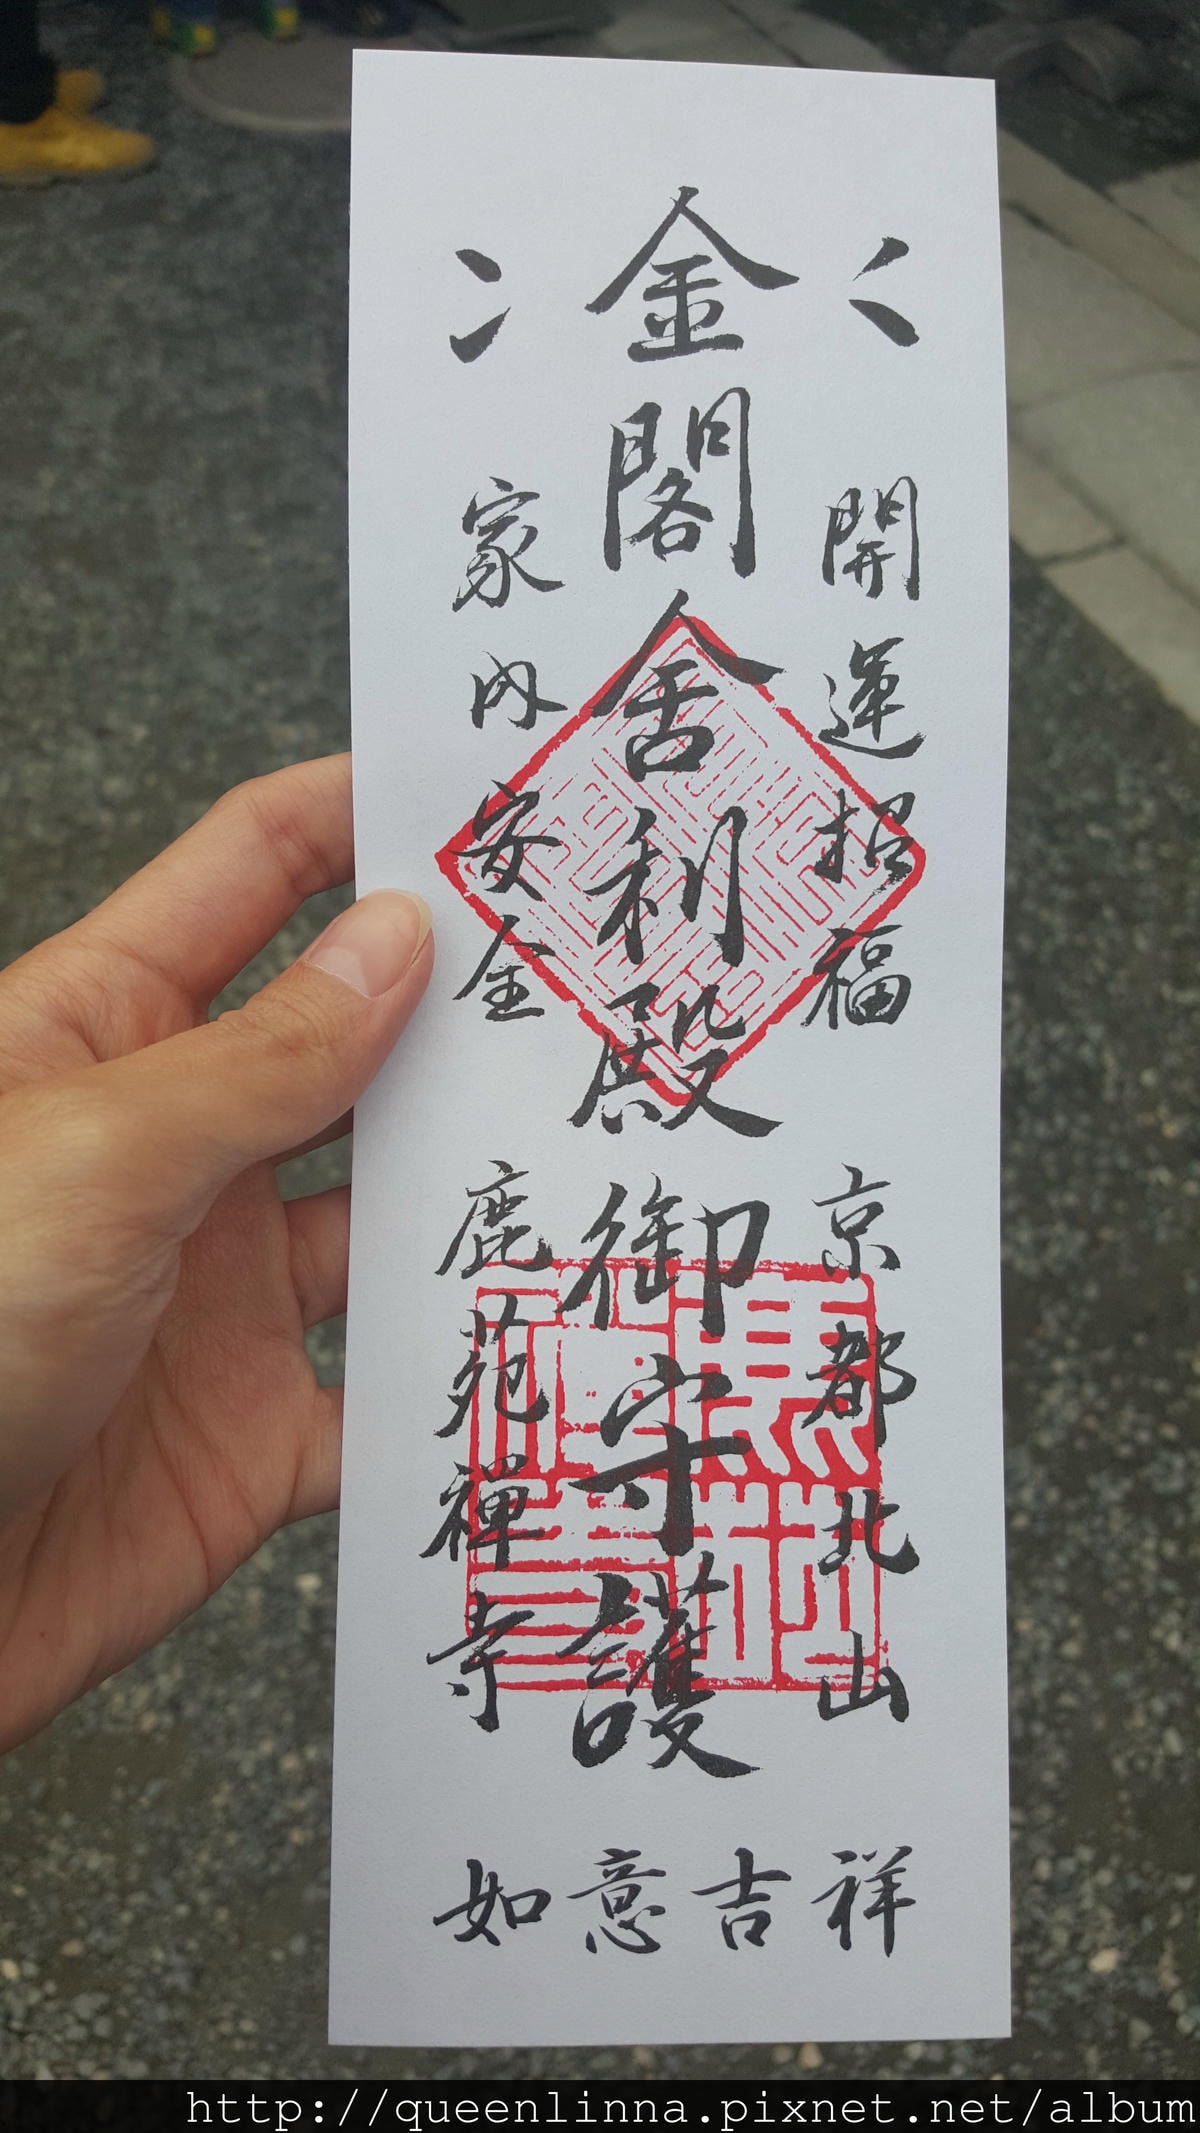 開運招福 京都北山
金閣舍利殿御守護
家内安全 鹿苑禅寺
如意吉祥
http://queenlinna.pixnet.net/album